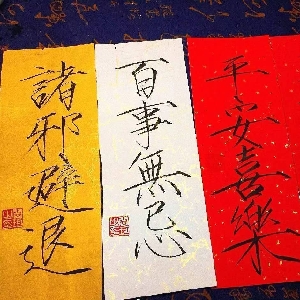 平安喜樂
百事無忌
諸邪避退